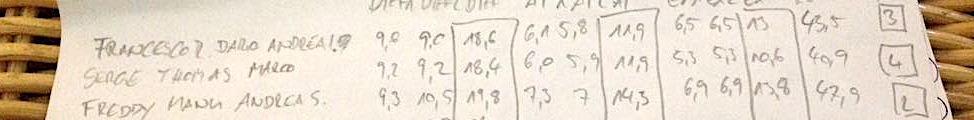 FRANCESCO R. DARO ANDREA S. 9,0 9,0 18,6 6,1 5,8 11,9 6,5 6,5 13 43,5 3
SERGE THOMAS MARCO 9,2 9,2 18,4 6,0 5,9 11,9 5,3 5,3 10,6 40,9 4
FREDDY MANU ANDREA S. 9,3 10,5 19,8 7,3 7 14,3 6,9 6,9 13,8 47,9 2